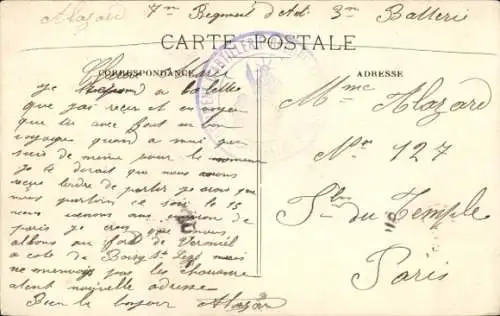 Alazard 7me Regiment d'Art 3me Batterie
CARTE POSTALE
CORRESPONDANCE
ADRESSE
Chere
Je repond a ta lettre
que j'ai recu et en voyan
que tu avec fait un bon
voyage quand a moi que
suis de meme pour le moment
je te dorait que nous avons
recue lordre de partir je crois que
nous partiron ce soir le 15
nous venons aux environ de
paris je crois que nous
allons au fort de Verneuil
a cote de Boissy St Leger mais
ne m'envois pas les
atent nouvelle adresse
Bien le bonjour Alazar
Mme Alazard
No 127
Fbg du Temple
Paris